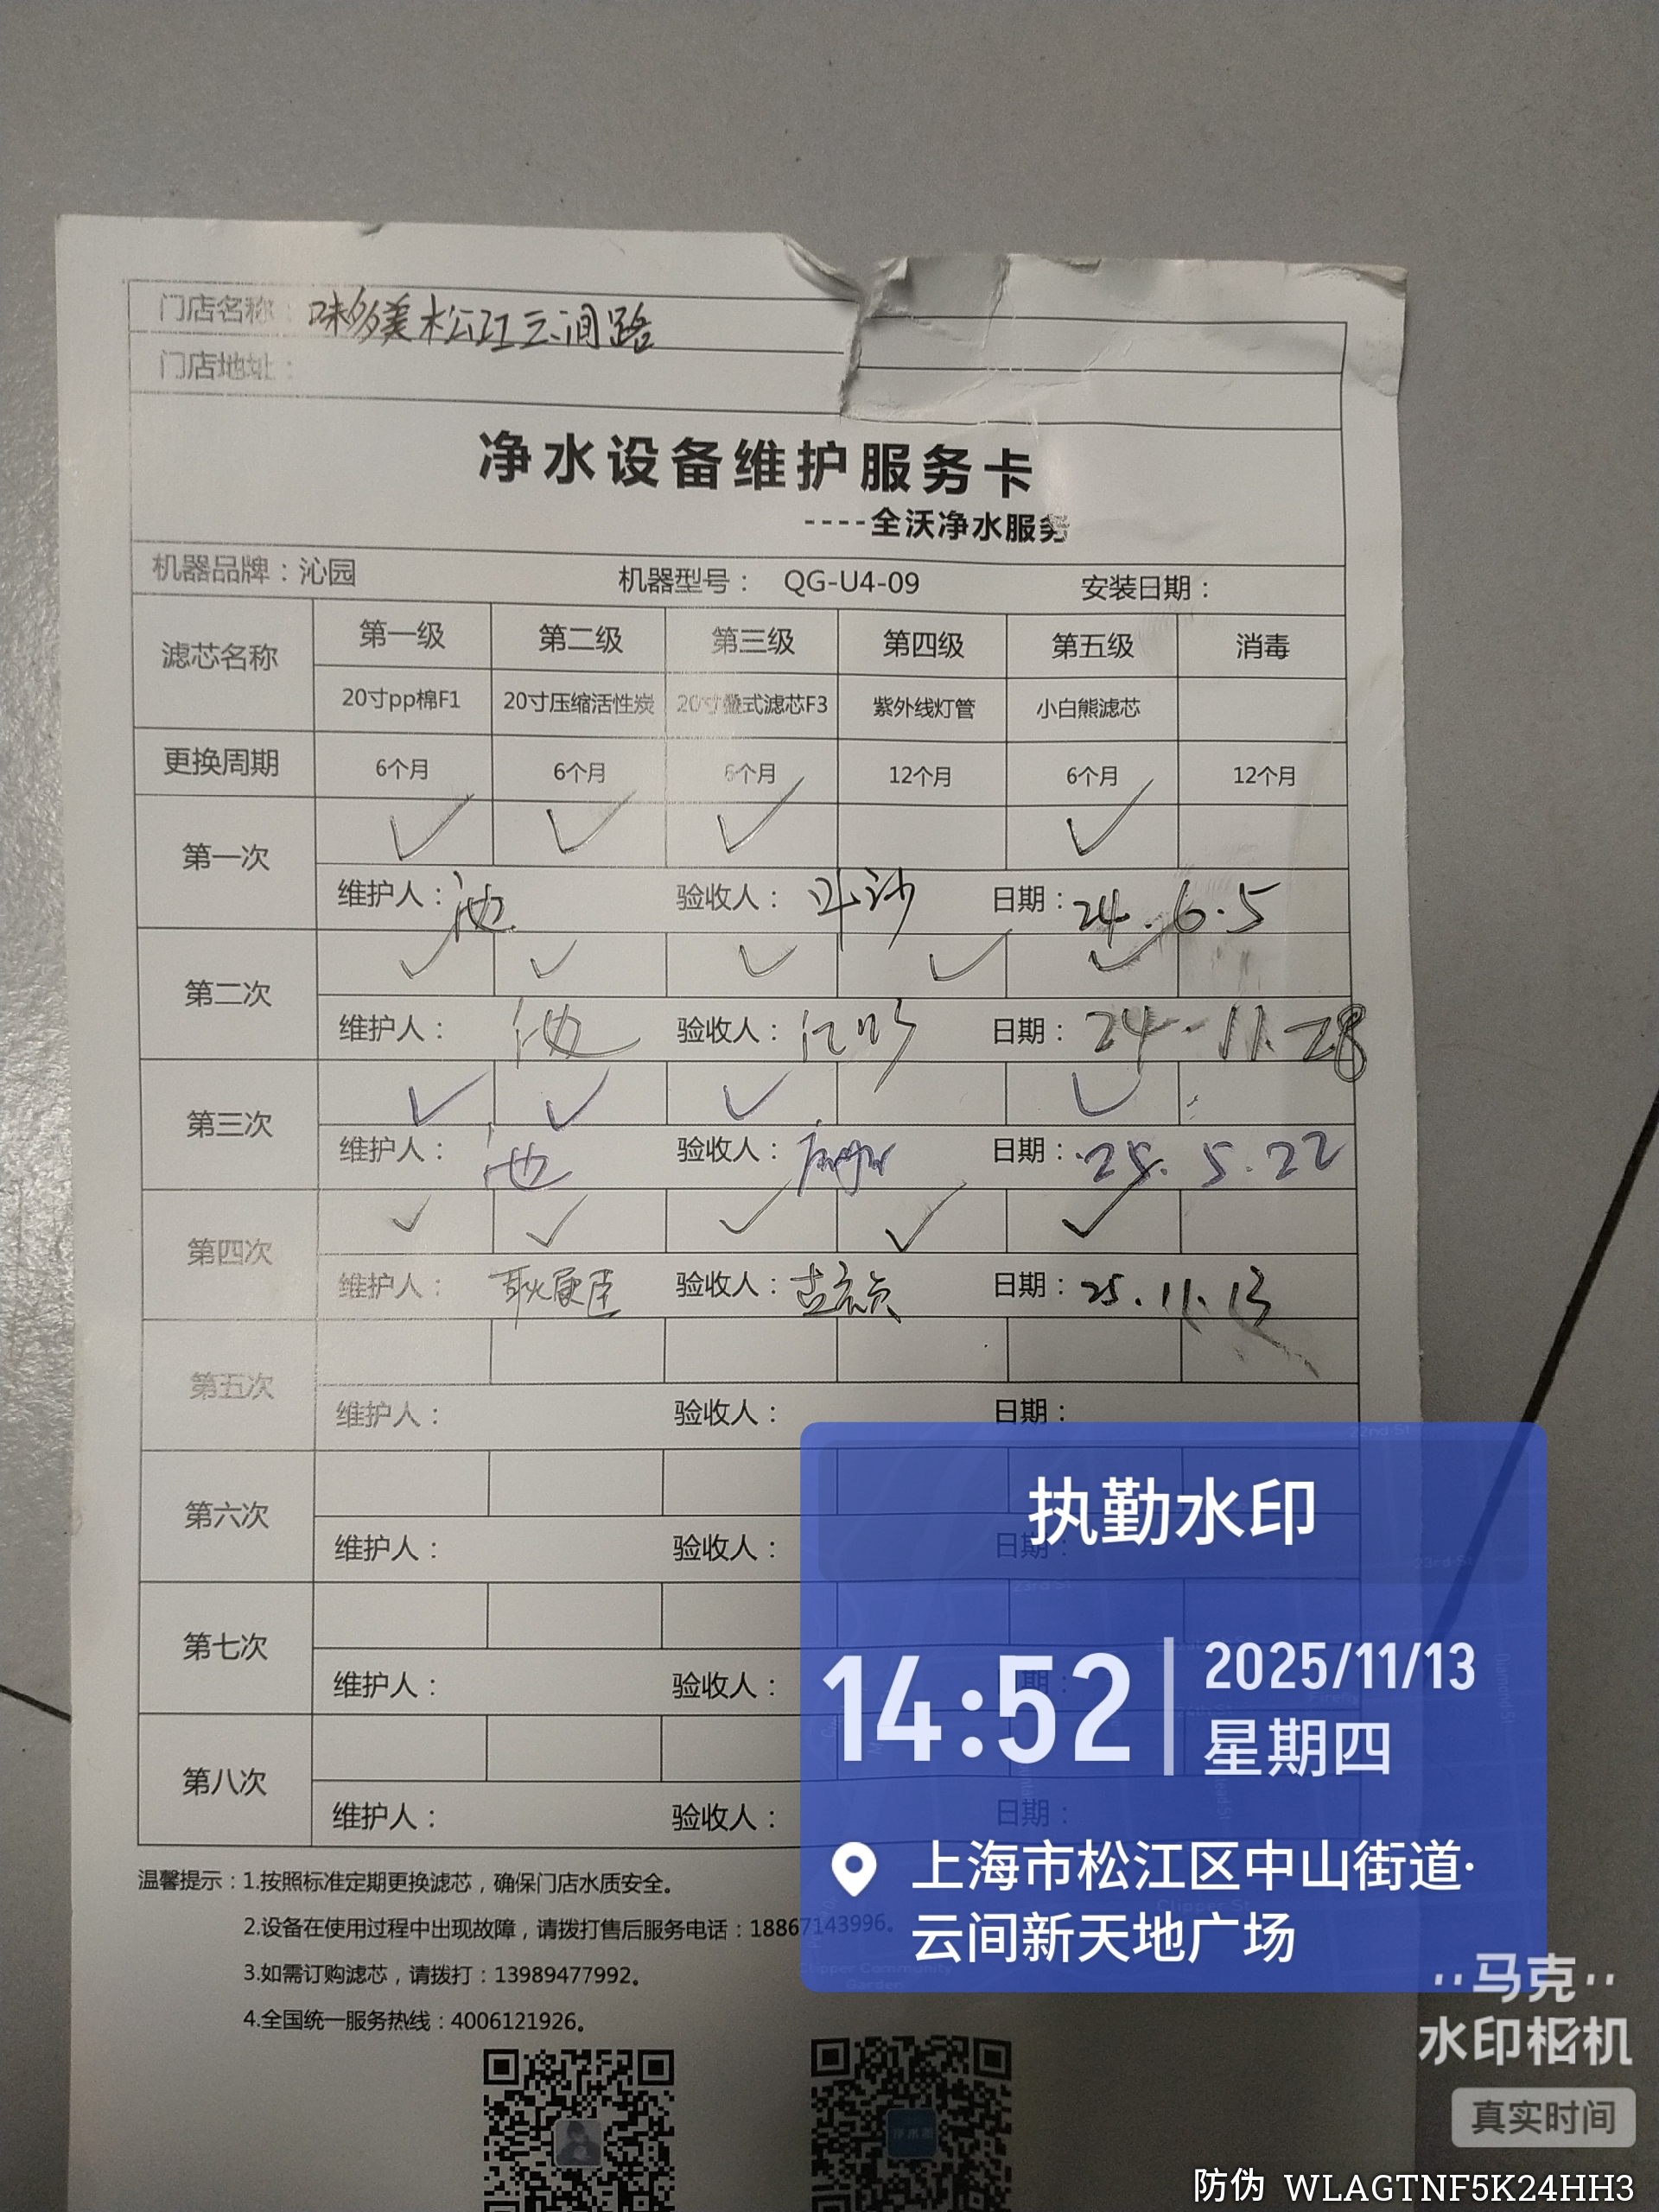 门店名称：味多美松江云间路
门店地址：
净水设备维护服务卡
----全沃净水服务
机器品牌：沁园 机器型号： QG-U4-09 安装日期：
滤芯名称 第一级 第二级 第三级 第四级 第五级 消毒
20寸pp棉F1 20寸压缩活性炭 20寸叠式滤芯F3 紫外线灯管 小白熊滤芯
更换周期 6个月 6个月 6个月 12个月 6个月 12个月
第一次 ✓ ✓ ✓ ✓
维护人：池 验收人： 日期：24.6.5
第二次 ✓ ✓ ✓ ✓ ✓
维护人：池 验收人： 日期：24-11-28
第三次 ✓ ✓ ✓ ✓
维护人：池 验收人： 日期：25.5.22
第四次 ✓ ✓ ✓ ✓ ✓
维护人： 验收人： 日期：25.11.13
第五次
维护人： 验收人： 日期：
第六次
维护人： 验收人： 日期：
第七次
维护人： 验收人： 日期：
第八次
维护人： 验收人： 日期：
温馨提示：1.按照标准定期更换滤芯，确保门店水质安全。
2.设备在使用过程中出现故障，请拨打售后服务电话：18867143996。
3.如需订购滤芯，请拨打：13989477992。
4.全国统一服务热线：4006121926。
执勤水印
14:52 2025/11/13
星期四
上海市松江区中山街道·
云间新天地广场
马克
水印相机
真实时间
防伪 WLAGTNF5K24HH3